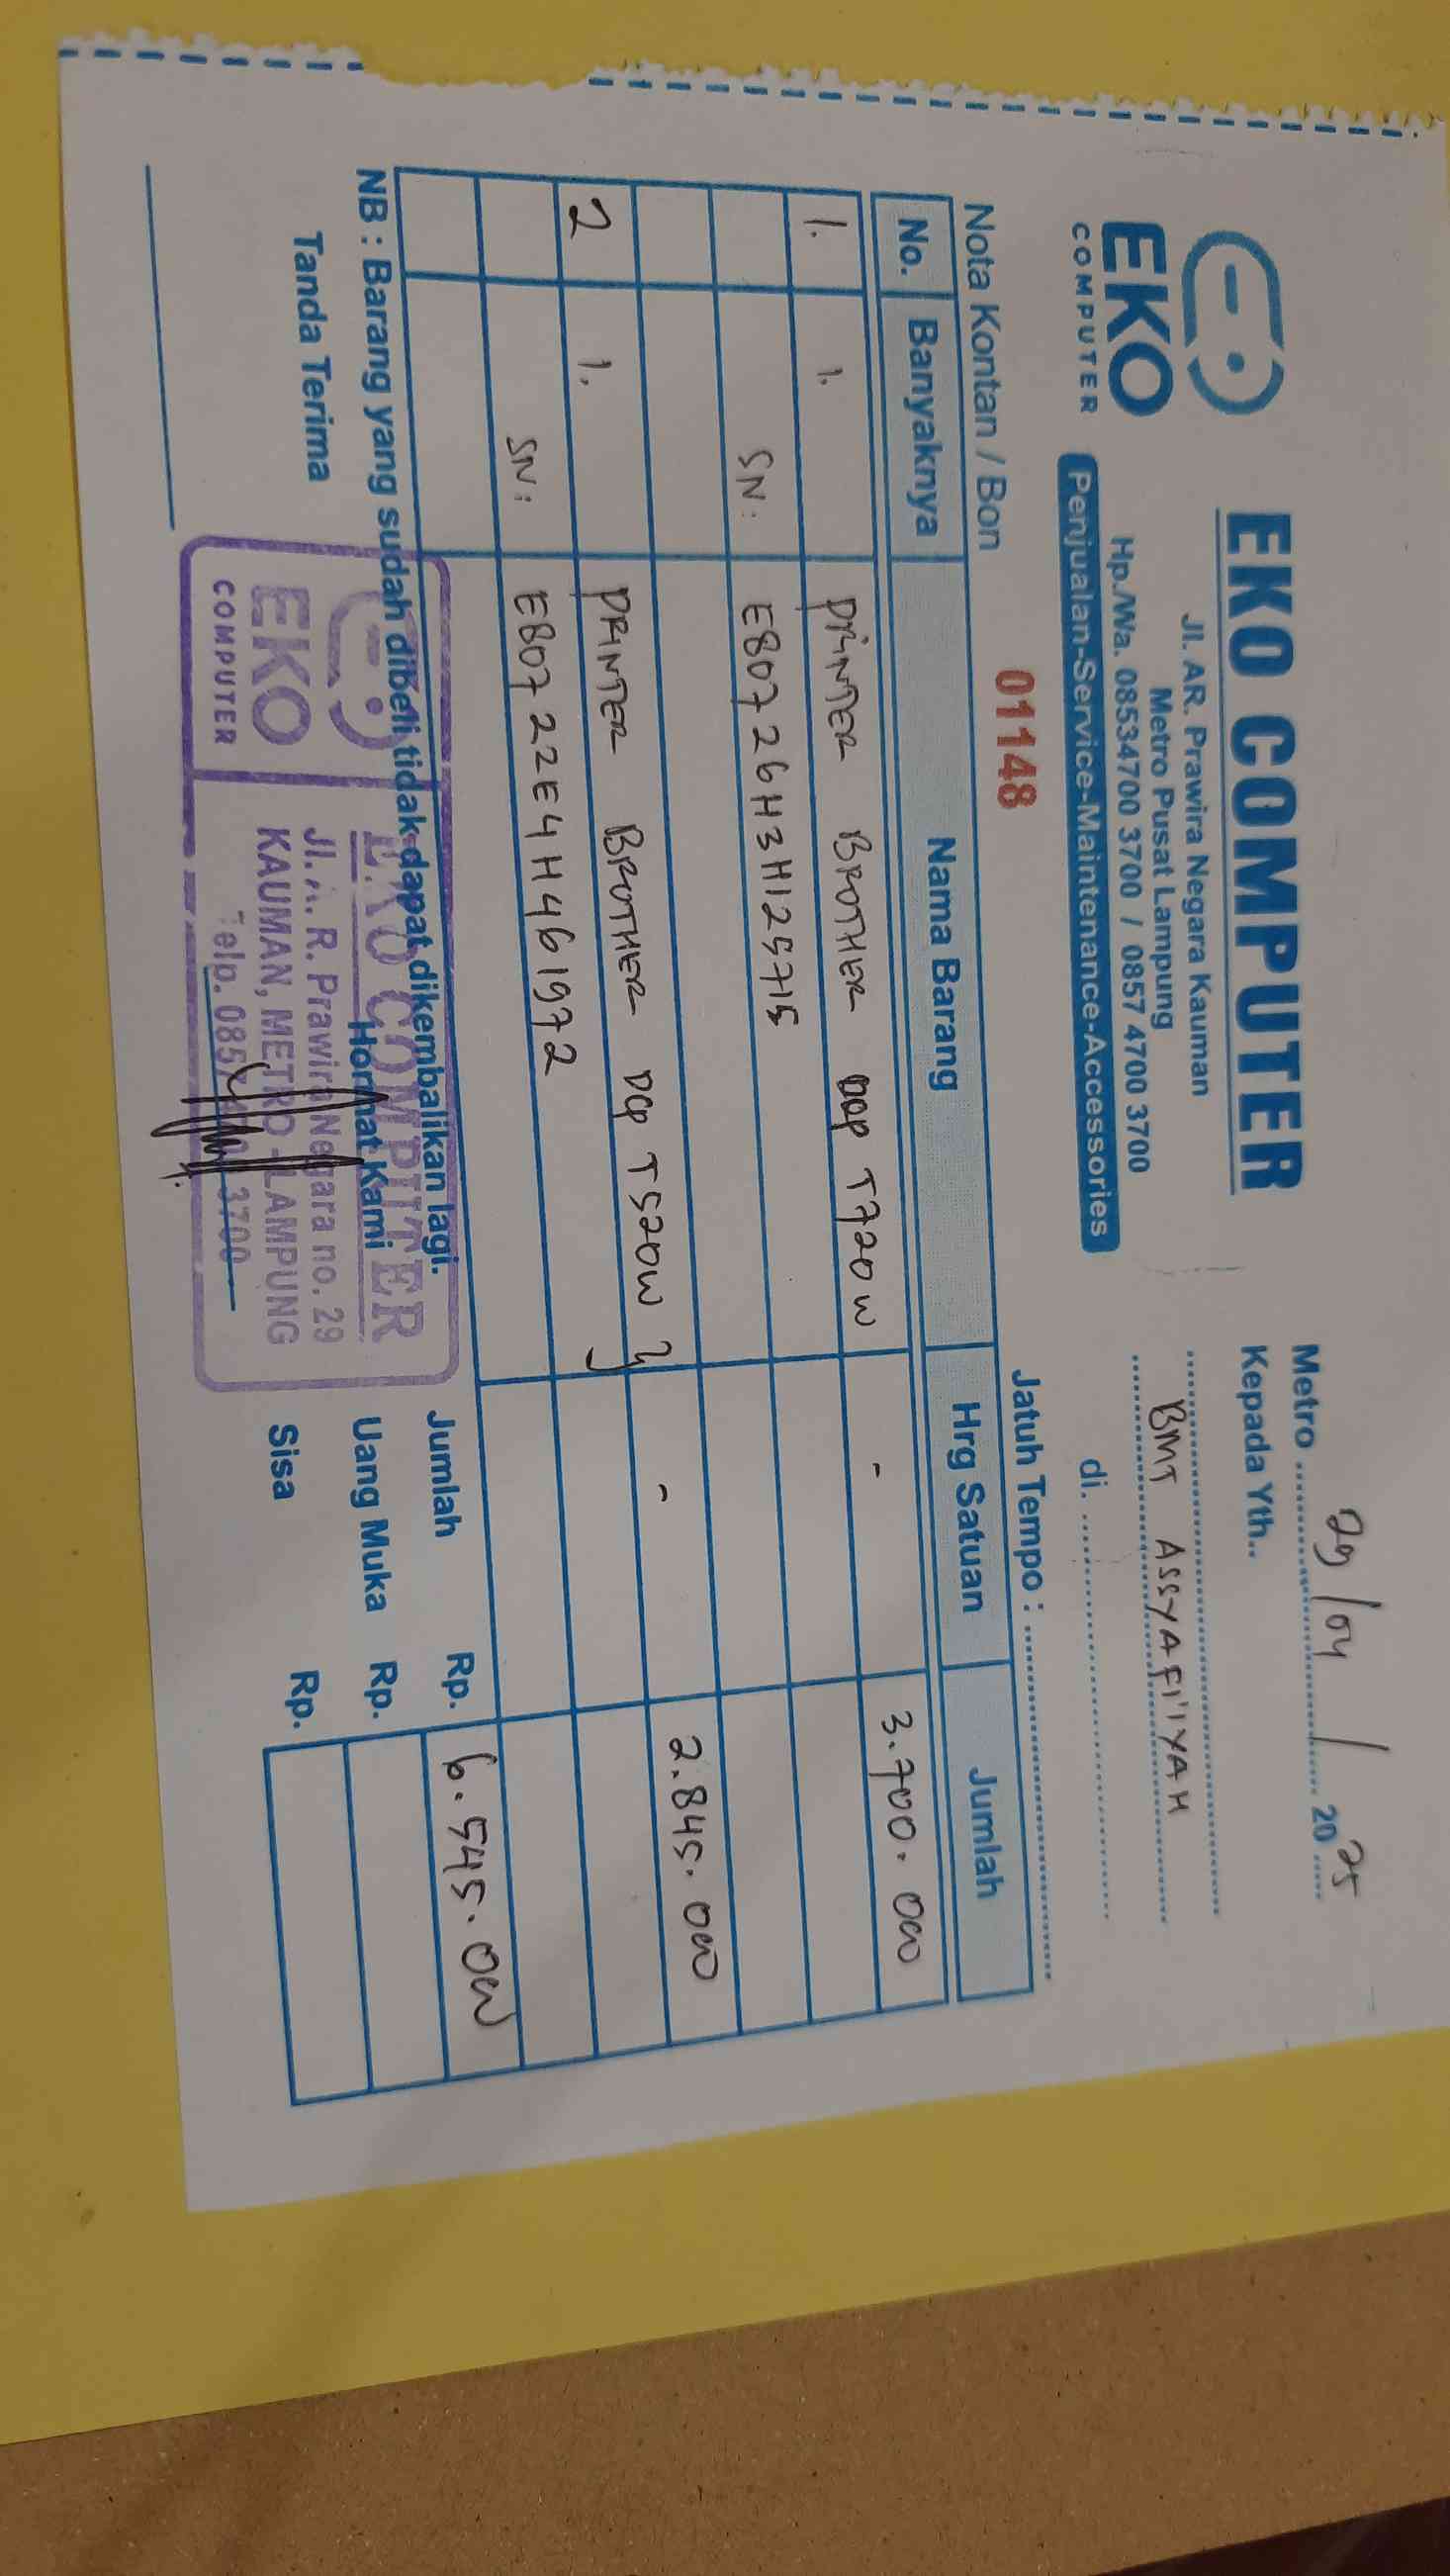 EKO
COMPUTER
EKO COMPUTER
Jl. AR. Prawira Negara Kauman
Metro Pusat Lampung
Hp./Wa. 08534700 3700 / 0857 4700 3700
Penjualan-Service-Maintenance-Accessories
Metro 29/04/ 2025
Kepada Yth..
BMT ASSYAFI'IYAH
di.
Nota Kontan / Bon 01148 Jatuh Tempo :
No. Banyaknya Nama Barang Hrg Satuan Jumlah
1. 1. PRINTER BROTHER DCP T720W - 3.700.000
SN: E80726H3H125715
2 1. PRINTER BROTHER DCP T520W - 2.845.000
SN: E80722E4H461972
Jumlah Rp. 6.545.000
Uang Muka Rp.
Sisa Rp.
NB : Barang yang sudah dibeli tidak dapat dikembalikan lagi.
Tanda Terima Hormat Kami
EKO
COMPUTER
EKO COMPUTER
Jl. A. R. Prawira Negara no. 29
KAUMAN, METRO LAMPUNG
Telp. 3700